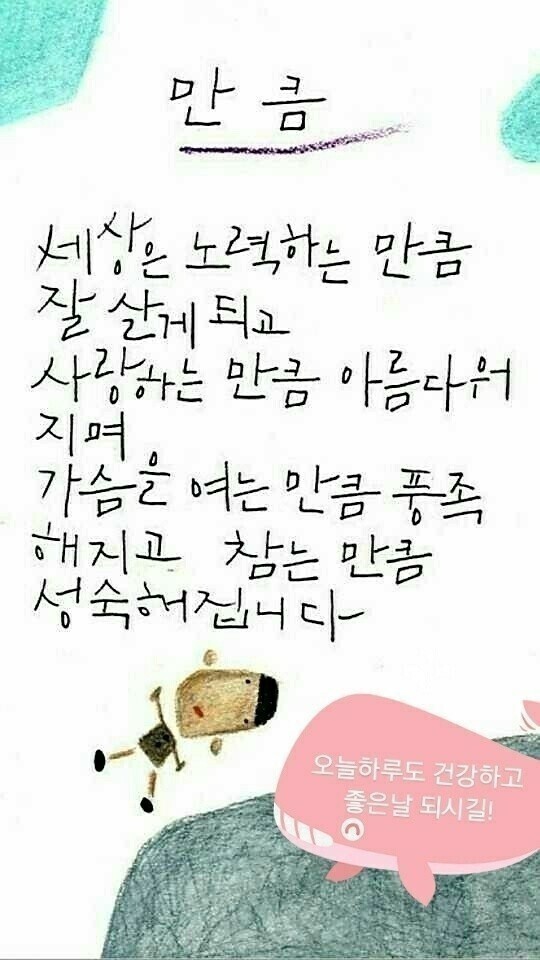 만큼
세상은 노력하는 만큼
잘 살게 되고
사랑하는 만큼 아름다워
지며
가슴을 여는 만큼 풍족
해지고 참는 만큼
성숙해집니다
오늘하루도 건강하고
좋은날 되시길!